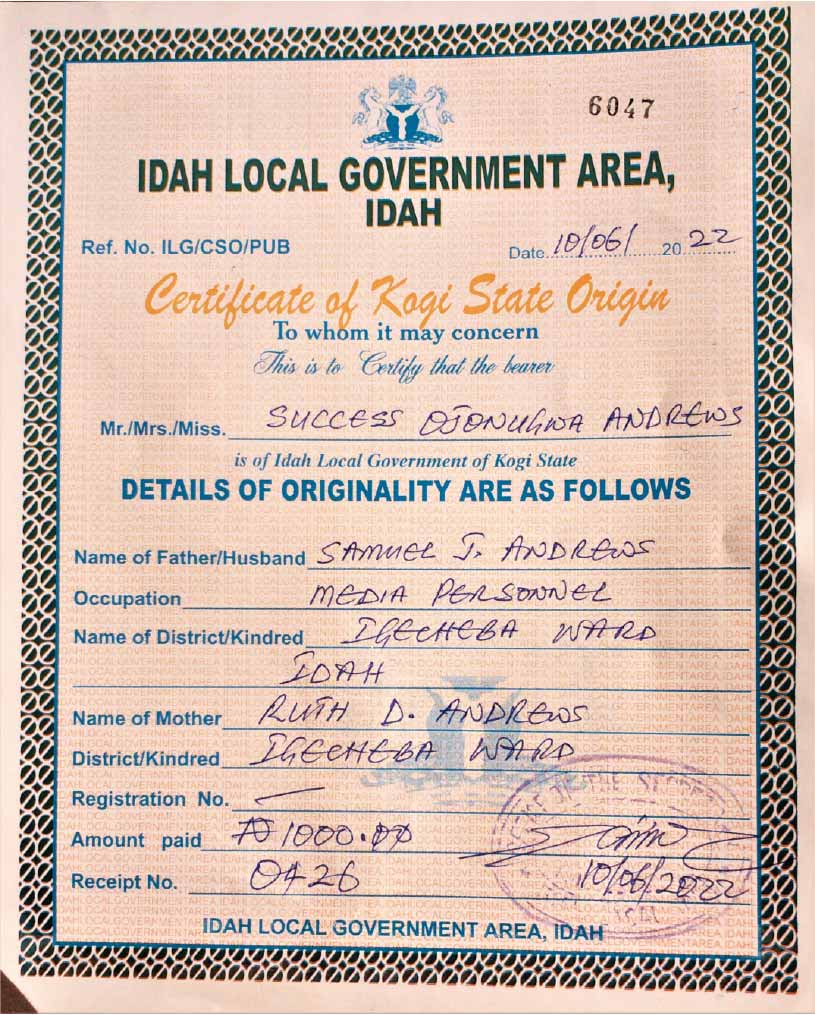 6047
IDAH LOCAL GOVERNMENT AREA,
IDAH
Ref. No. ILG/CSO/PUB
Date 10/06/ 20 22
Certificate of Kogi State Origin
To whom it may concern
This is to Certify that the bearer
Mr./Mrs./Miss. SUCCESS OJONUGWA ANDREWS
is of Idah Local Government of Kogi State
DETAILS OF ORIGINALITY ARE AS FOLLOWS
Name of Father/Husband SAMUEL J. ANDREWS
Occupation MEDIA PERSONNEL
Name of District/Kindred IGECHEBA WARD
IDAH
Name of Mother RUTH D. ANDREWS
District/Kindred IGECHEBA WARD
Registration No. —
Amount paid ₦1000.00
Receipt No. 0426
10/06/2022
IDAH LOCAL GOVERNMENT AREA, IDAH